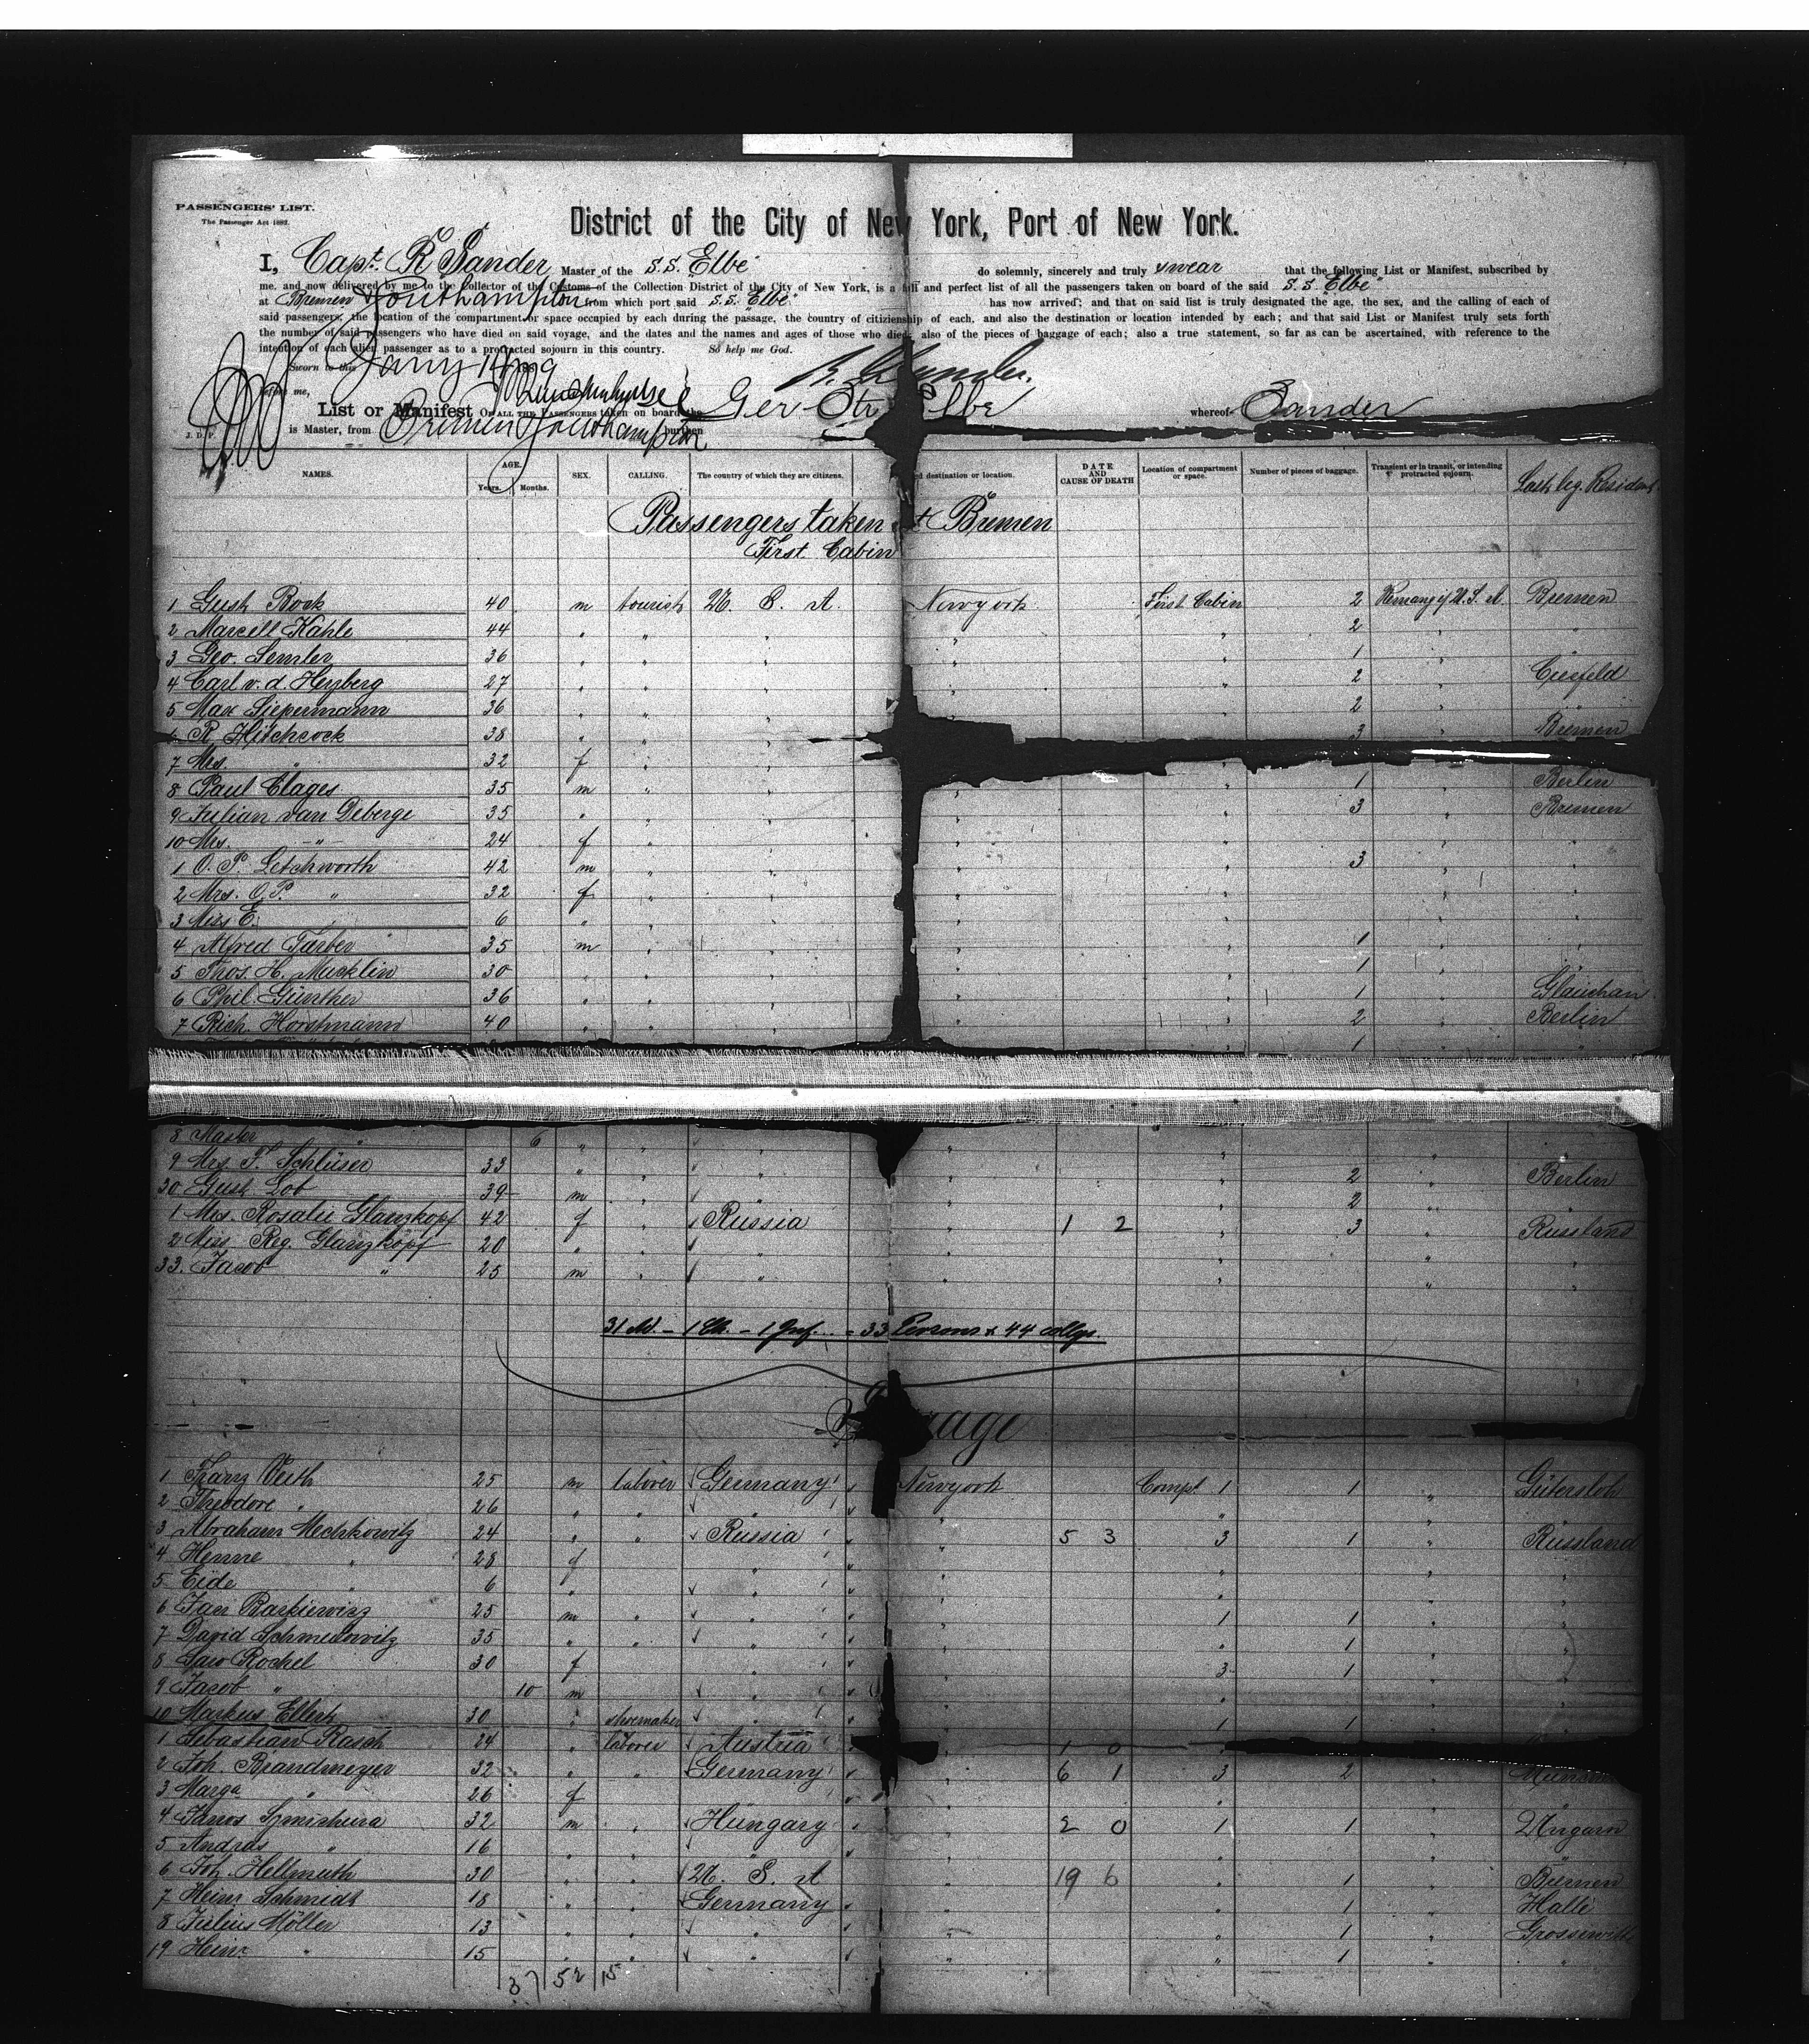 PASSENGERS' LIST.
The Passenger Act 1882.
District of the City of New York, Port of New York.
I, Capt. R Sander Master of the S.S. "Elbe" do solemnly, sincerely and truly swear that the following List or Manifest, subscribed by
me, and now delivered by me to the Collector of the Customs of the Collection District of the City of New York, is a full and perfect list of all the passengers taken on board of the said S.S. "Elbe"
at Bremen & Southampton from which port said S.S. "Elbe" has now arrived; and that on said list is truly designated the age, the sex, and the calling of each of
said passengers, the location of the compartment or space occupied by each during the passage, the country of citizienship of each, and also the destination or location intended by each; and that said List or Manifest truly sets forth
the number of said passengers who have died on said voyage, and the dates and the names and ages of those who died, also of the pieces of baggage of each; also a true statement, so far as can be ascertained, with reference to the
intention of each alien passenger as to a protracted sojourn in this country. So help me God.
Sworn to this Jany 14
before me,
List or Manifest OF ALL THE PASSENGERS taken on board the Ger Str Elbe whereof Sander
J. D. P. is Master, from Bremen & Southampton burthen
NAMES. AGE. Years. Months. SEX. CALLING. The country of which they are citizens. d destination or location. DATE AND CAUSE OF DEATH Location of compartment or space. Number of pieces of baggage. Transient or in transit, or intending protracted sojourn. Last leg. Resident
Passengers taken at Bremen
First Cabin
1 Gust. Bock 40 m tourist U. S. A. Newyork First Cabin 2 U. S. A. Bremen
2 Marcell Kahle 44 " " " " " 2 " "
3 Geo. Semler 36 " " " " " 1 " "
4 Carl v. d. Heyberg 27 " " " " " 2 " Crefeld
5 Max Siepermann 36 " " " " " 2 " "
6 R Hitchcock 38 " " " 3 " Bremen
7 Mrs. " 32 f " "
8 Paul Clages 35 m " " " 1 " Berlin
9 Julian van Deberge 35 " " " " 3 " Bremen
10 Mrs. -"- 24 f " " " " " "
1 O. P. Letchworth 42 m " " " " 3 " "
2 Mrs. O. P. " 32 f " " " " " "
3 Miss E. " 6 " " " " " " "
4 Alfred Farber 35 m " " " " 1 " "
5 Thos. H. Mucklin 30 " " " " " 1 " "
6 Phil. Günther 36 " " " " " 1 " Glauchau
7 Rich. Horstmann 40 " " " " " 2 " Berlin
1 " "
8 Master " 6 " " " " " "
9 Mrs. F. Schlüser 33 " " " " " 2 " Berlin
30 Gust. Lob 39 m " " " " 2 " "
1 Mrs. Rosalie Glanzkopf 42 f " Russia " 1 2 " 3 " Russland
2 Miss Reg. Glanzkopf 20 " " " " " " "
33. Jacob " 25 m " " " " " "
31 Ad. - 1 Ch. - 1 Inf. = 33 Persons & 44 collys
age
1 Franz Veith 25 m laborer Germany Newyork Compt 1 1 " Gütersloh
2 Theodore " 26 " " " " " " "
3 Abraham Mechkowitz 24 " " Russia " 5 3 3 1 " Russland
4 Henne " 28 f " " " " "
5 Eide " 6 " " " " " "
6 Jan Barkiewicz 25 m " " " 1 1 " "
7 David Schmerkowitz 35 " " " " " 1 " "
8 Rochel 30 f " " 3 1 " "
9 Jacob " 10 m " " " " "
10 Markus Ellert 30 " shoemaker " " 1 1 " "
1 Sebastian Rasch 24 " laborer Austria 1 0
2 Joh. Brandmeyer 32 " " Germany " 6 1 3 2 "
3 Marga " 26 f " " " "
4 Janos 32 m " Hungary " 2 0 1 1 " Ungarn
5 Andras " 16 " " " " " " "
6 Joh. Hellmuth 30 " " U. S. A " 19 6 " 1 " Bremen
7 Heinr. Schmidt 18 " " Germany " " 1 " Halle
8 Julius Möller 13 " " " " " 1 "
19 Heinr. " 15 " " " " " 1 " "
37 52 15